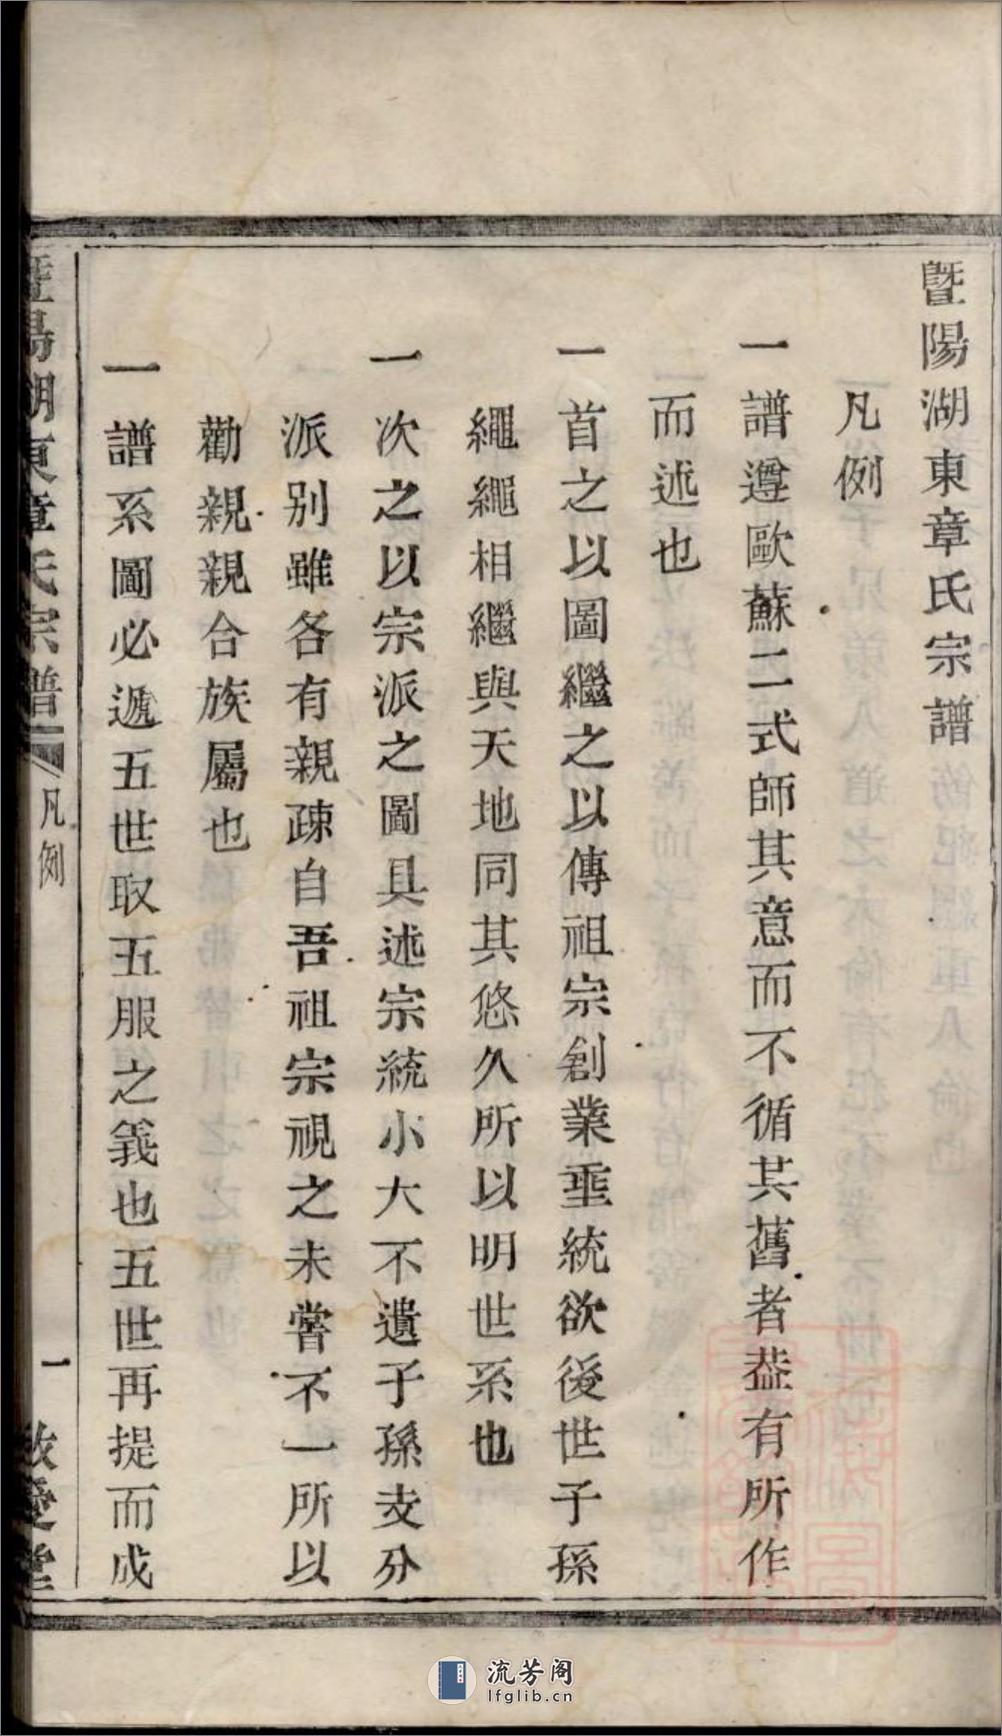 暨陽湖東章氏宗譜
凡例
一譜遵歐蘇二式師其意而不循其舊者葢有所作
而述也
一首之以圖繼之以傳祖宗創業垂統欲後世子孫
繩繩相繼與天地同其悠久所以明世系也
一次之以宗派之圖具述宗統小大不遺子孫支分
派别雖各有親疎自吾祖宗視之未嘗不一所以
勸親親合族屬也
一譜系圖必遞五世取五服之義也五世再提而成
暨陽湖東章氏宗譜
凡例
一
敬愛堂
流芳阁
lfglib.cn